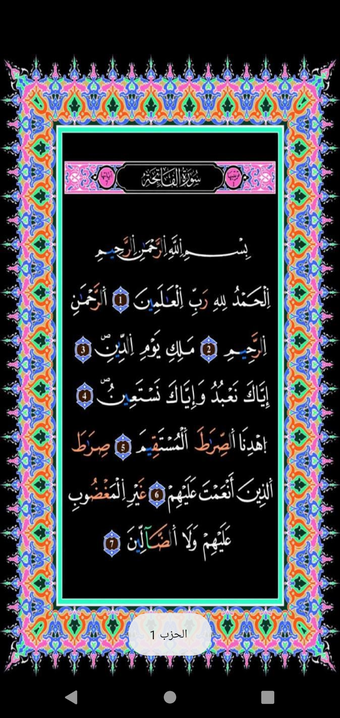 سُورَةُ الفَاتِحَةِ
بِسْمِ اللَّهِ الرَّحْمَٰنِ الرَّحِيمِ
اِ۬لْحَمْدُ لِلهِ رَبِّ اِ۬لْعَٰلَمِينَ 1 اَ۬لرَّحْمَٰنِ
اِ۬لرَّحِيمِ 2 مَلِكِ يَوْمِ اِ۬لدِّينِۖ 3
إِيَّاكَ نَعْبُدُ وَإِيَّاكَ نَسْتَعِينُۖ 4
اُ۪هْدِنَا اَ۬لصِّرَٰطَ اَ۬لْمُسْتَقِيمَ 5 صِرَٰطَ
اَ۬لذِينَ أَنْعَمْتَ عَلَيْهِمْ 6 غَيْرِ اِ۬لْمَغْضُوبِ
عَلَيْهِمْ وَلَا اَ۬لضَّآلِّينَ 7
الحزب 1